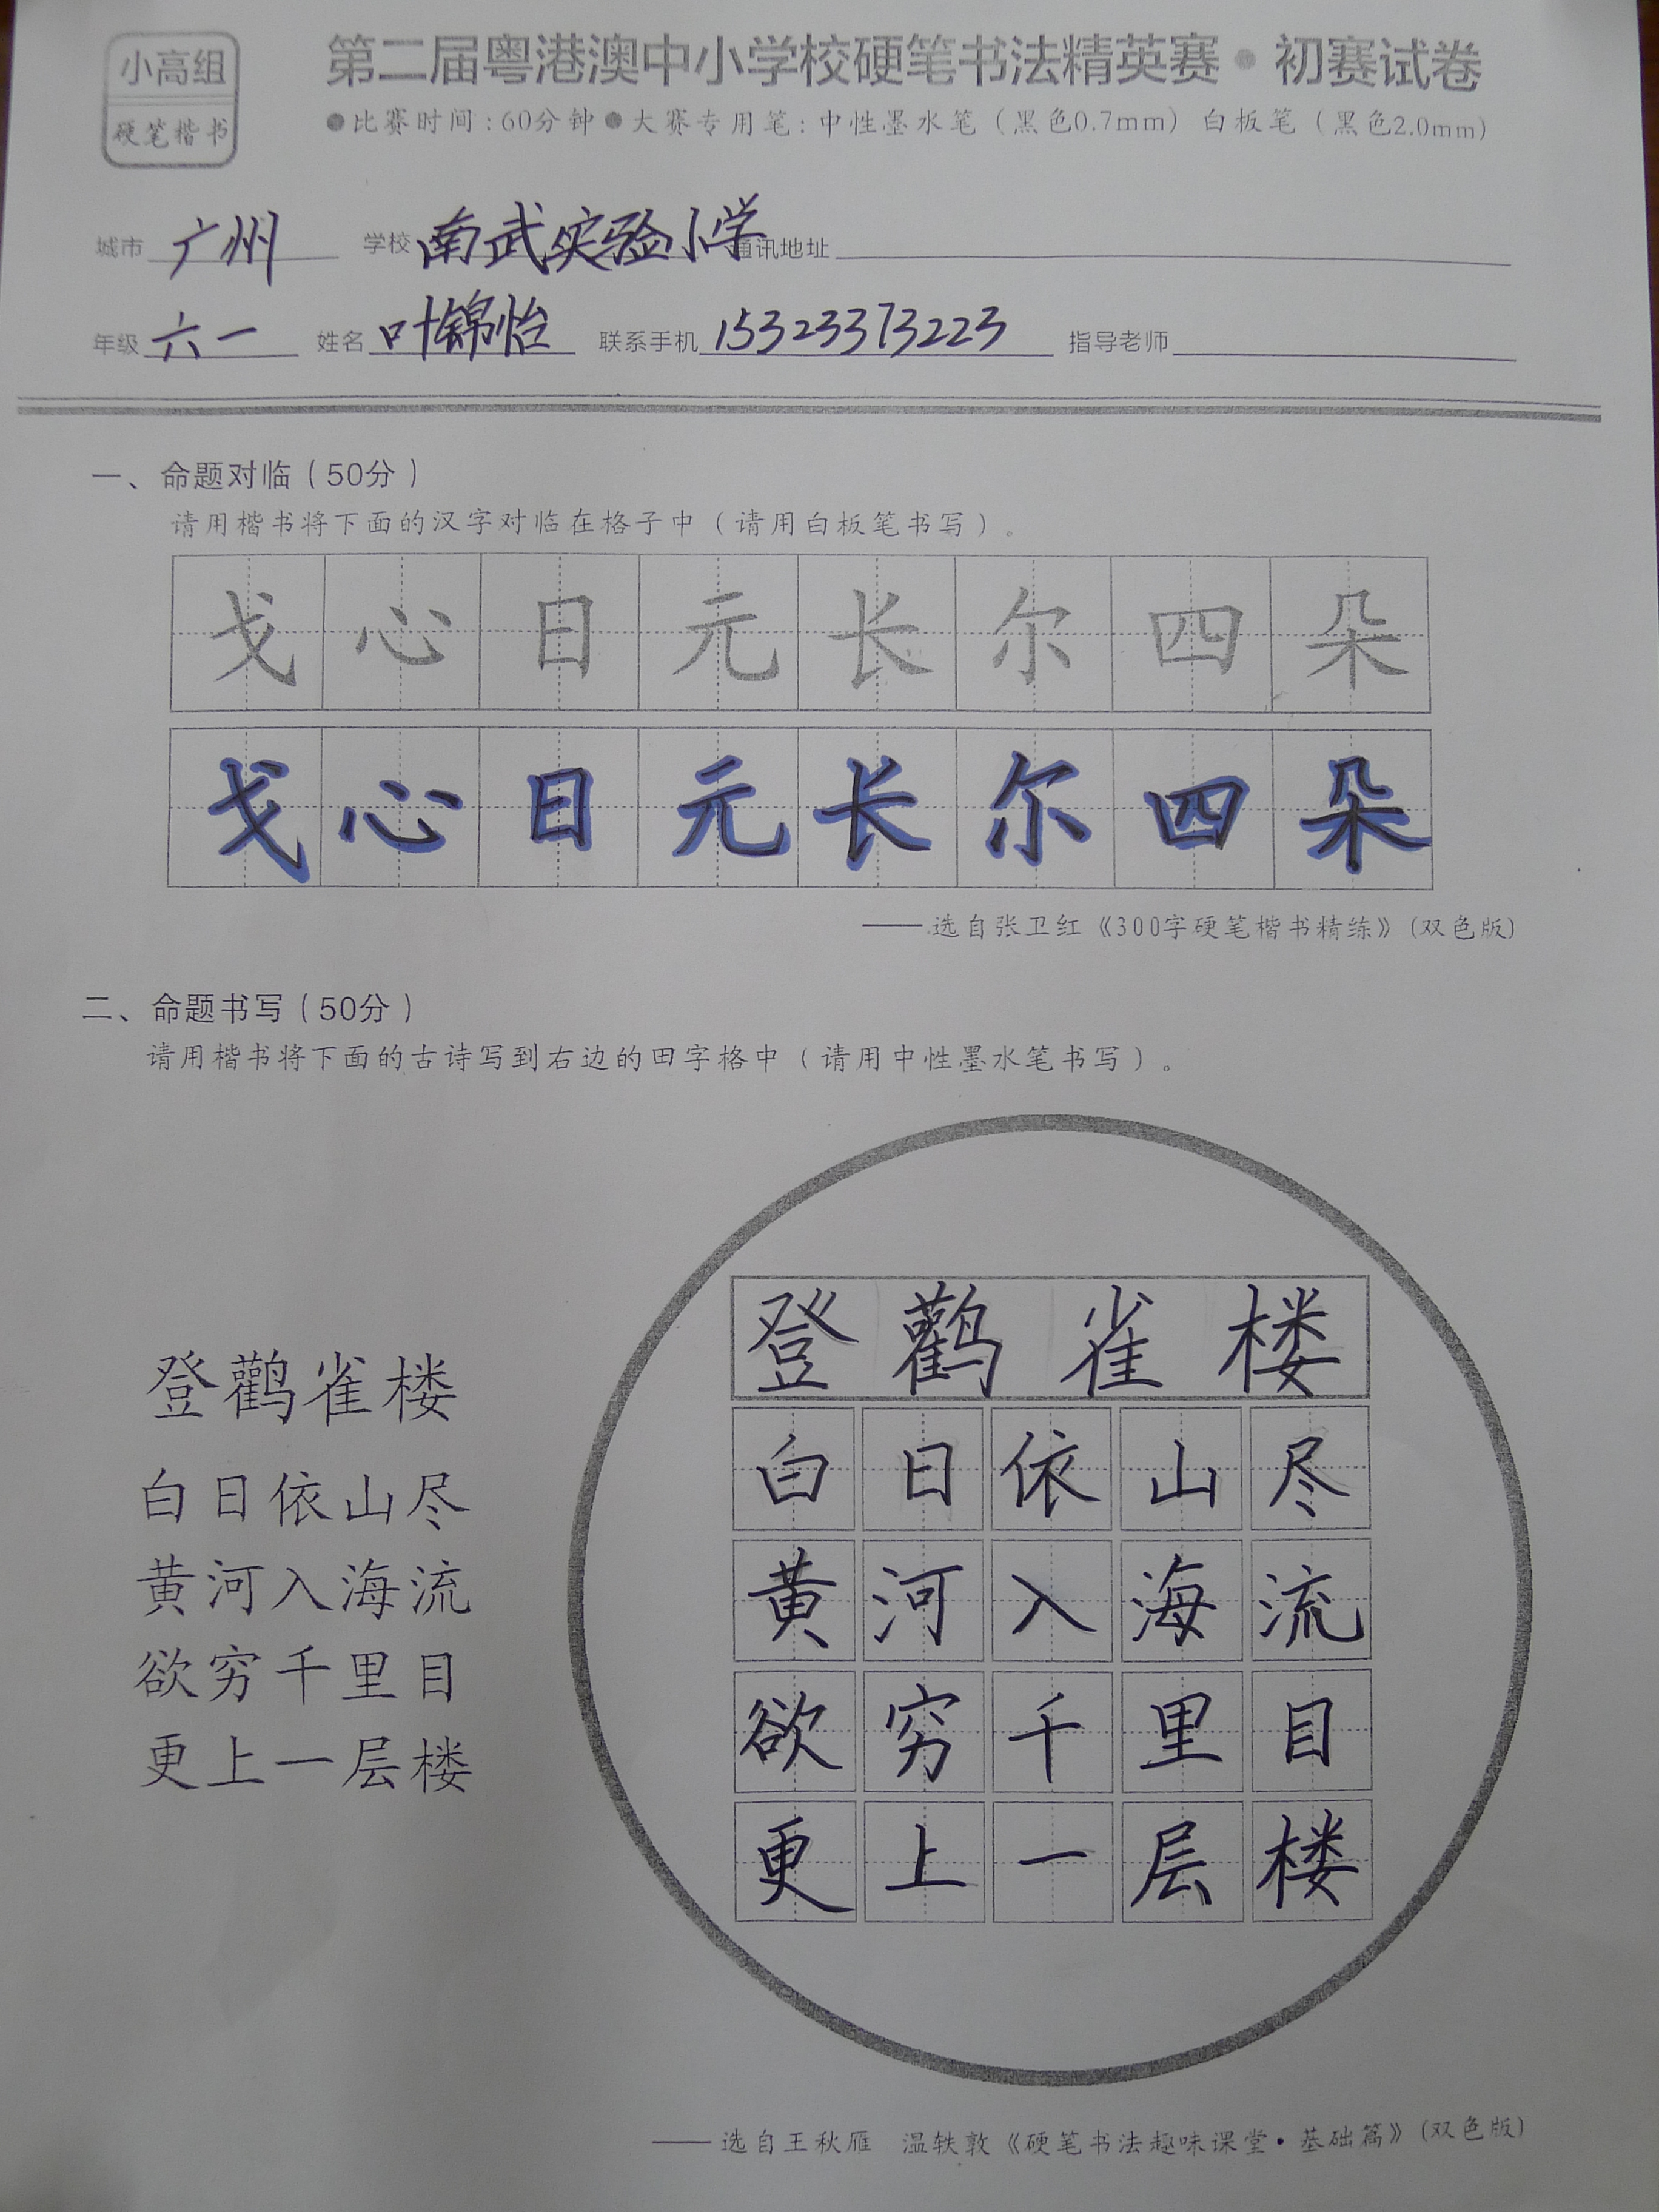 小高组
硬笔楷书
第二届粤港澳中小学校硬笔书法精英赛·初赛试卷
●比赛时间:60分钟●大赛专用笔:中性墨水笔(黑色0.7mm)白板笔(黑色2.0mm)
城市 广州 学校 南武实验小学 通讯地址
年级 六一 姓名 叶锦怡 联系手机 15323373223 指导老师
一、命题对临(50分)
请用楷书将下面的汉字对临在格子中(请用白板笔书写)。
戈心日元长尔四朵
戈心日元长尔四朵
——选自张卫红《300字硬笔楷书精练》(双色版)
二、命题书写(50分)
请用楷书将下面的古诗写到右边的田字格中(请用中性墨水笔书写)。
登鹳雀楼
白日依山尽
黄河入海流
欲穷千里目
更上一层楼
登鹳雀楼
白日依山尽
黄河入海流
欲穷千里目
更上一层楼
——选自王秋雁 温轶敦《硬笔书法趣味课堂·基础篇》(双色版)